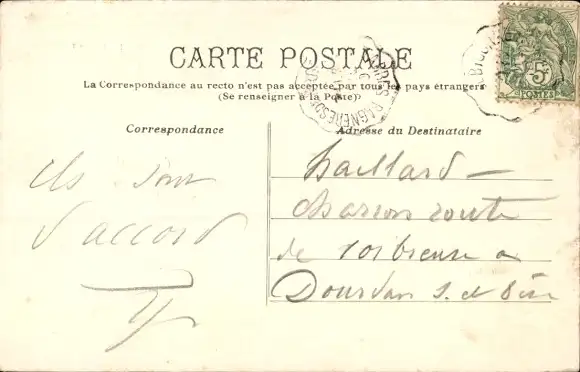 CARTE POSTALE
La Correspondance au recto n'est pas acceptée par tous les pays étrangers
(Se renseigner à la Poste)
Correspondance
Adresse du Destinataire
Ils sont
d'accord
haillard –
charron route
de corbreuse a
Dourdan S. et Oise
5c
POSTES